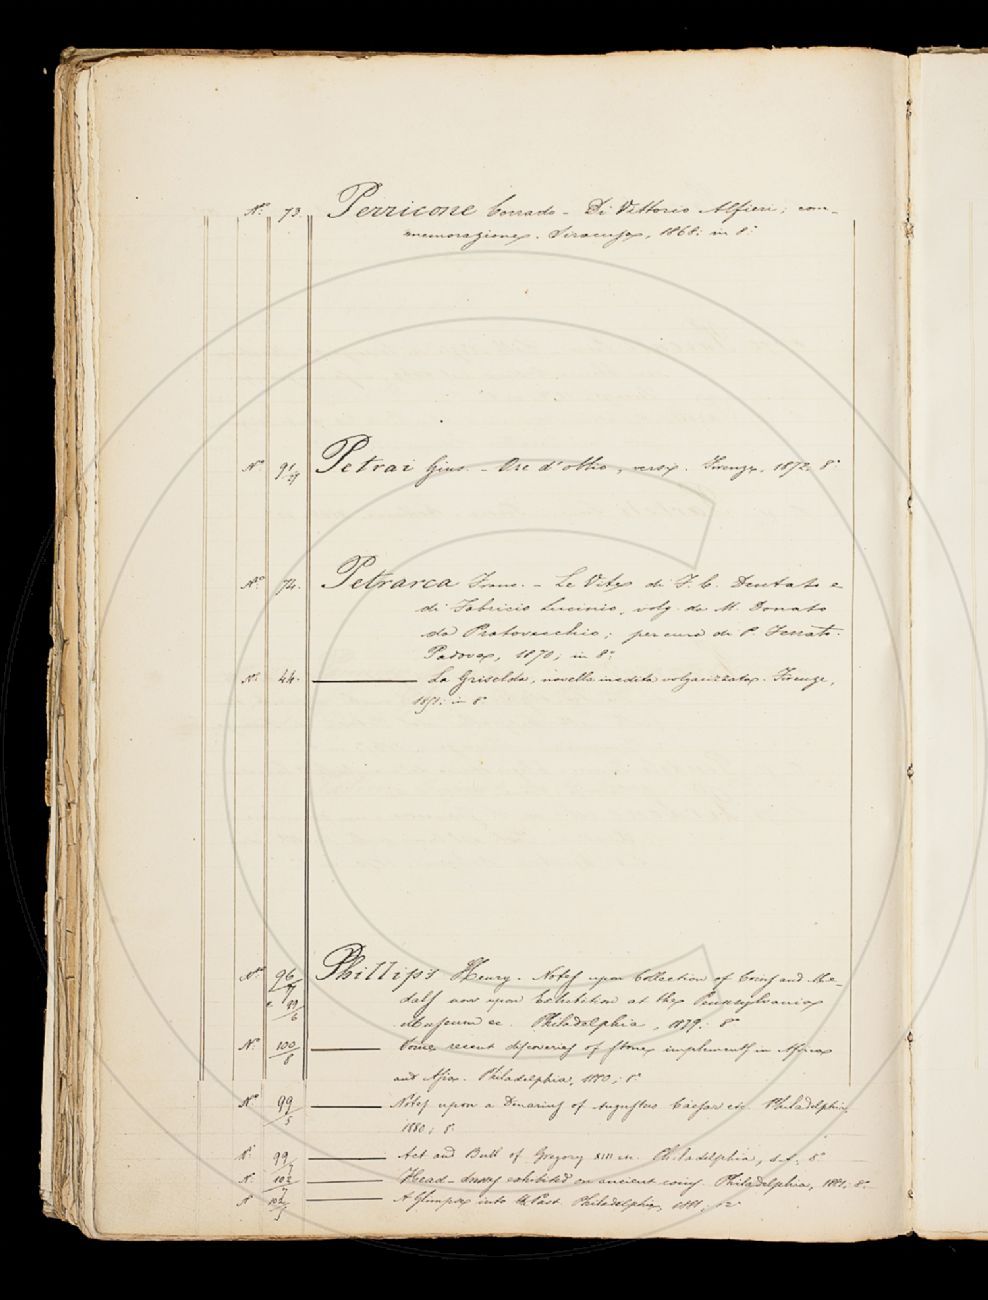 N.° 73. Perricone Corrado - Di Vittorio Alfieri; com-
memorazione. Siracusa, 1868; in 8.°
N.° 91/27 Petrai Gius. - Ore d'ozio, versi. Firenze, 1872. 8.°
N.° 74. Petrarca Franc. - Le Vite di F. C. Dentato e
di Fabricio Lucinio, volg. da M. Donato
da Pratovecchio; per cura di P. Ferrato.
Padova, 1870; in 8.°
N.° 44. La Griselda, novella inedita volgarizzata. Firenze,
in 8.°
N.° 96/ e 89/6 Phillips Henry. - Notes upon Collection of Coins and Me-
dals now upon Exhibition at the Pennsylvania
Museum ec. Philadelphia, 1879; 8.°
N.° 100/8 Some recent discoveries of stone implements in Africa
and Asia. Philadelphia, 1880; 8.°
N.° 99/5 Notes upon a Denarius of Augustus Caesar ec. Philadelphia,
1880; 8.°
N.° 99/ Act and Bull of Gregory XIII ec. Philadelphia, s.d.; 8.°
N.° Head-dress exhibited on ancient coins. Philadelphia, 1881; 8.°
N.° A Glimpse into the Past. Philadelphia, 1881;